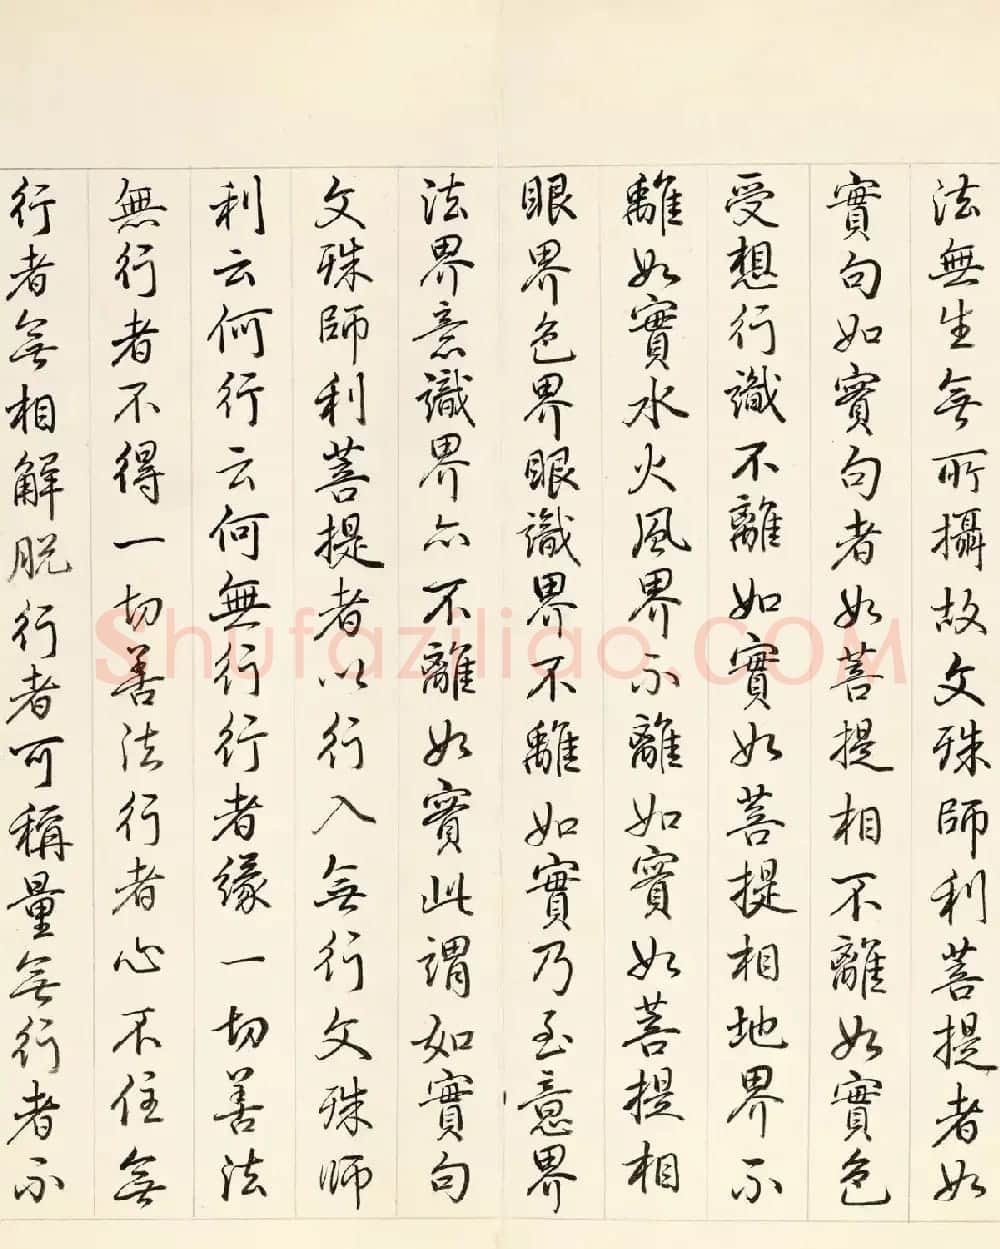 法無生無所攝故文殊師利菩提者如
實句如實句者如菩提相不離如實色
受想行識不離如實如菩提相地界不
離如實水火風界不離如實如菩提相
眼界色界眼識界不離如實乃至意界
法界意識界亦不離如實此謂如實句
文殊師利菩提者以行入無行文殊師
利云何行云何無行行者緣一切善法
無行者不得一切善法行者心不住無
行者無相解脫行者可稱量無行者不
Shufaziliao.COM